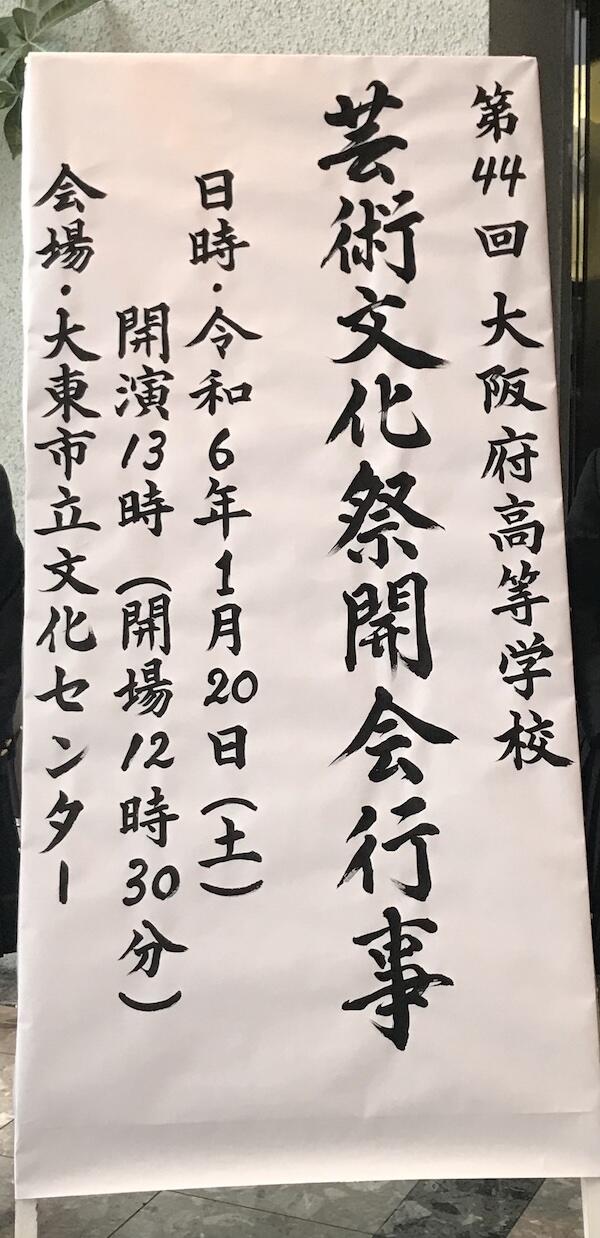 第44回 大阪府高等学校
芸術文化祭開会行事
日時・令和6年1月20日(土)
開演13時(開場12時30分)
会場・大東市立文化センター